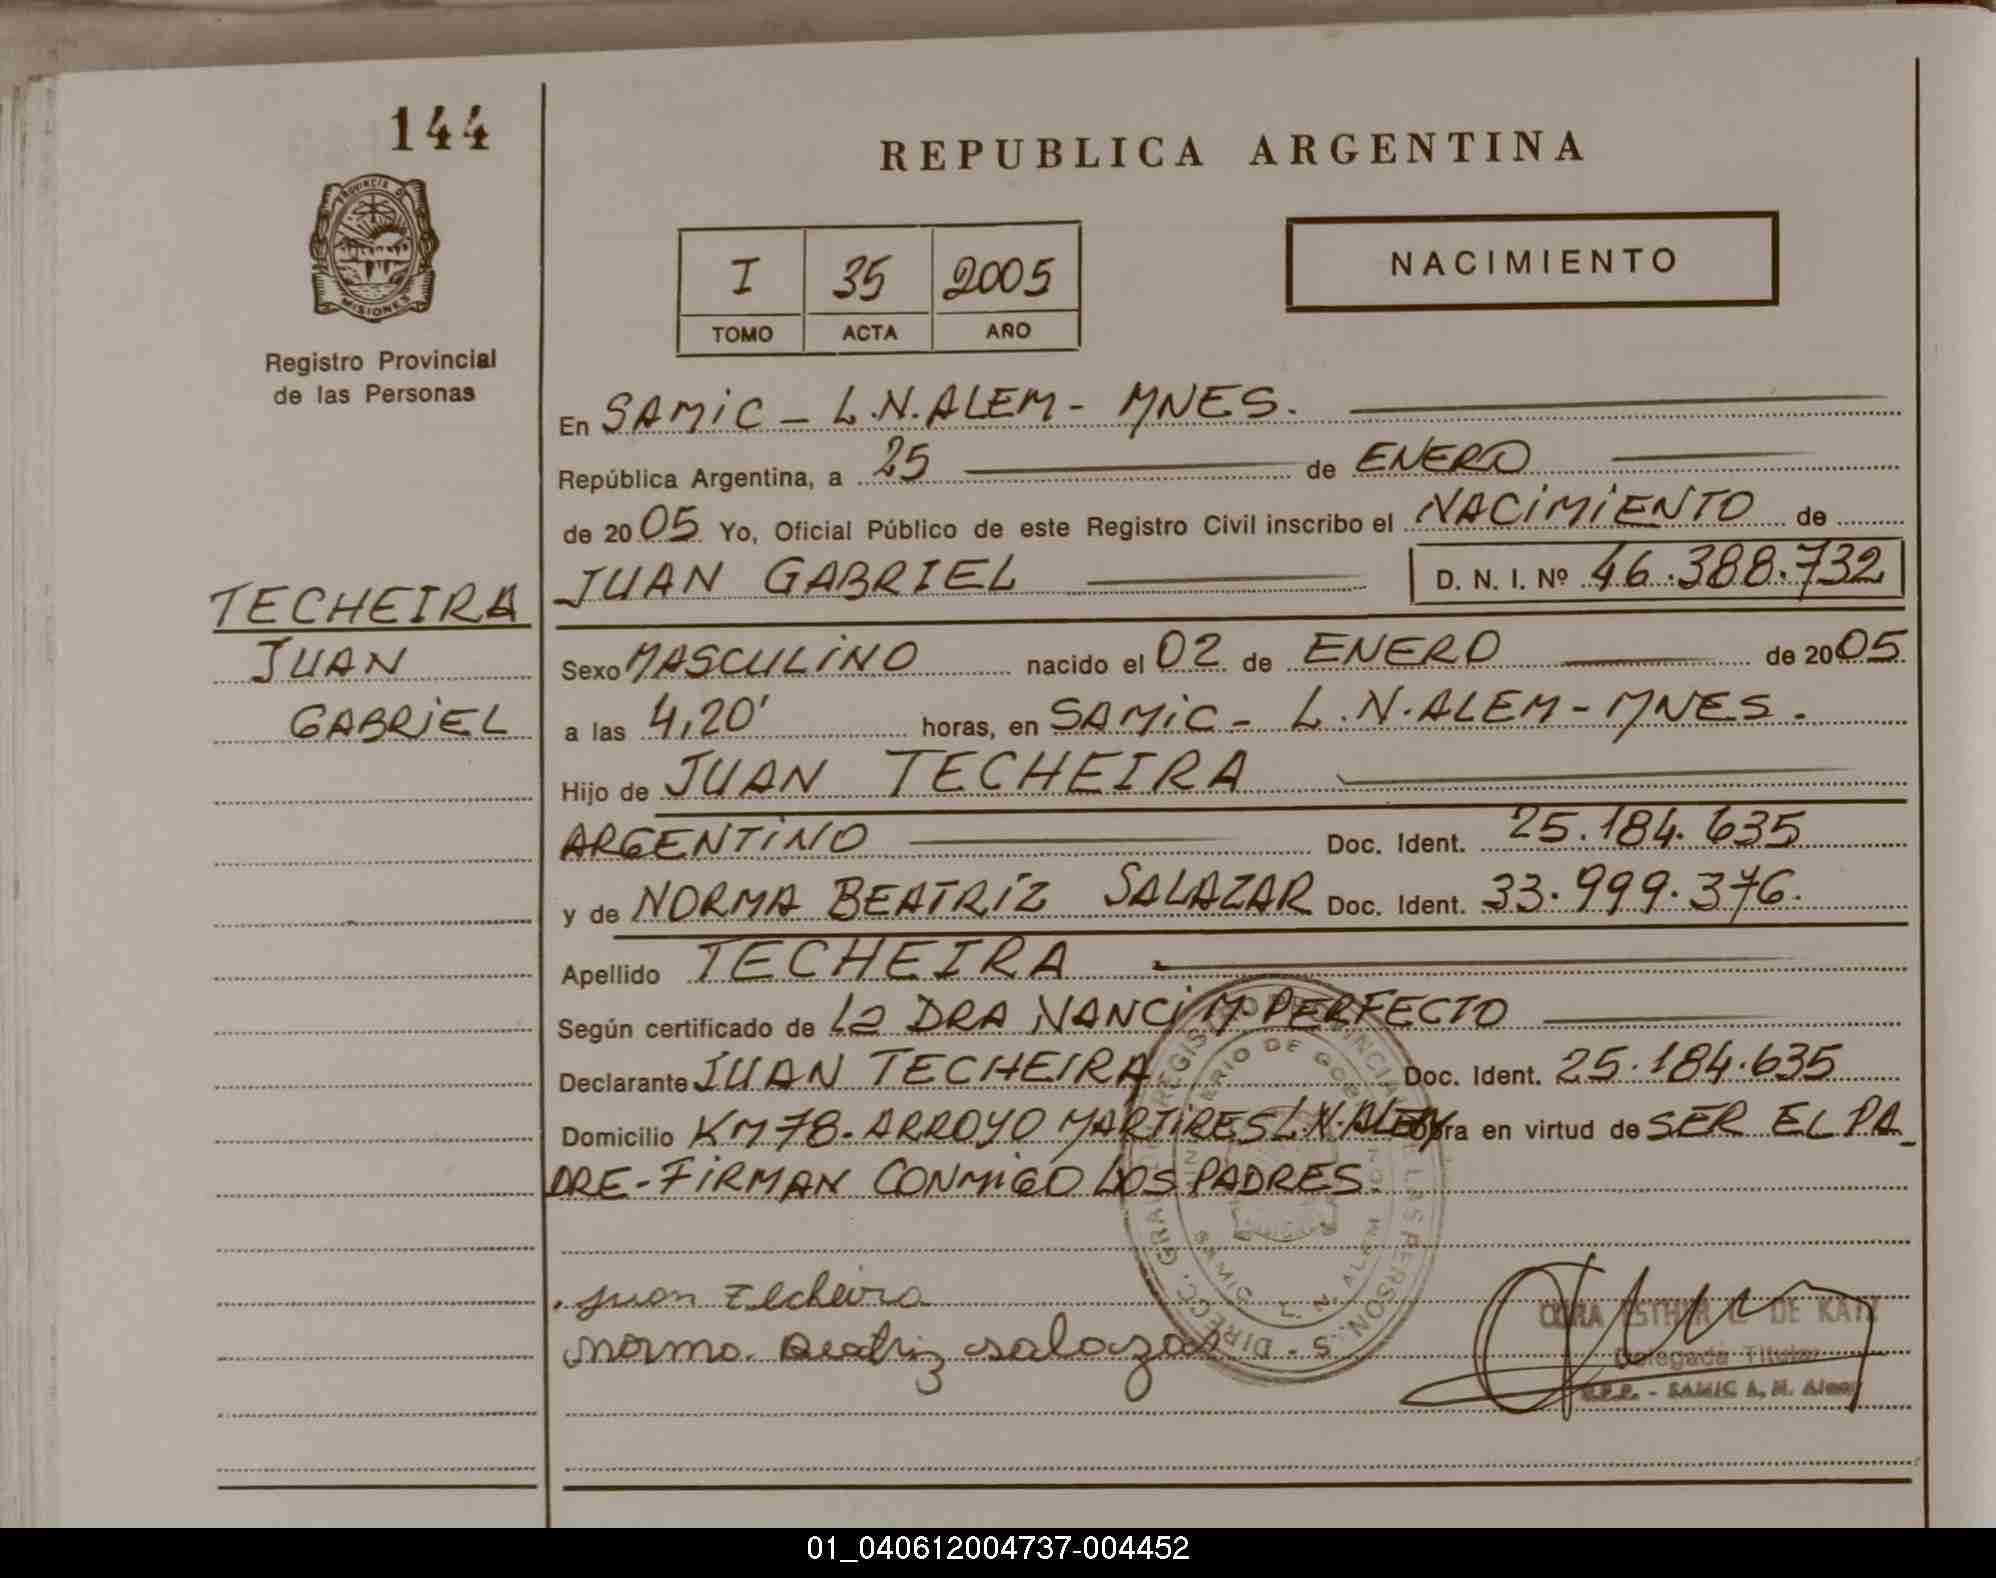 144
REPUBLICA ARGENTINA
PROVINCIA DE
MISIONES
I 35 2005
TOMO ACTA AÑO
NACIMIENTO
Registro Provincial
de las Personas
En SAMIC - L.N.ALEM - MNES.
República Argentina, a 25 de ENERO
de 2005 Yo, Oficial Público de este Registro Civil inscribo el NACIMIENTO de
JUAN GABRIEL D. N. I. Nº 46.388.732
TECHEIRA
JUAN
GABRIEL
Sexo MASCULINO nacido el 02 de ENERO de 2005
a las 4,20' horas, en SAMIC - L.N.ALEM - MNES.
Hijo de JUAN TECHEIRA
ARGENTINO Doc. Ident. 25.184.635
y de NORMA BEATRIZ SALAZAR Doc. Ident. 33.999.376.
Apellido TECHEIRA
Según certificado de La DRA NANCI M. PERFECTO
Declarante JUAN TECHEIRA Doc. Ident. 25.184.635
Domicilio KM 78. ARROYO MARTIRES L.N.ALEM obra en virtud de SER EL PA_
DRE - FIRMAN CONMIGO LOS PADRES.
Juan Techeira
Norma Beatriz Salazar
ESTHER DE KATZ
Delegada Titular
SAMIC L. N. Alem
01_040612004737-004452